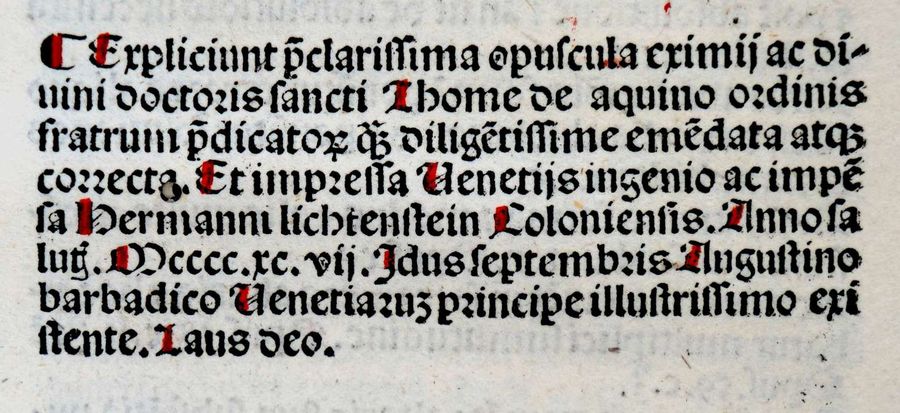 ¶ Expliciunt p̄clarissima opuscula eximij ac di-
uini doctoris sancti Thome de aquino ordinis
fratrum p̄dicatoꝝ q̄ꝫ diligētissime emēdata atqꝫ
correcta. Et impressa Uenetijs ingenio ac impē
sa Hermanni lichtenstein Coloniensis. Anno sa
lutꝭ. Mcccc.xc.vij. Idus septembris Augustino
barbadico Uenetiaruꝫ principe illustrissimo exi
stente. Laus deo.